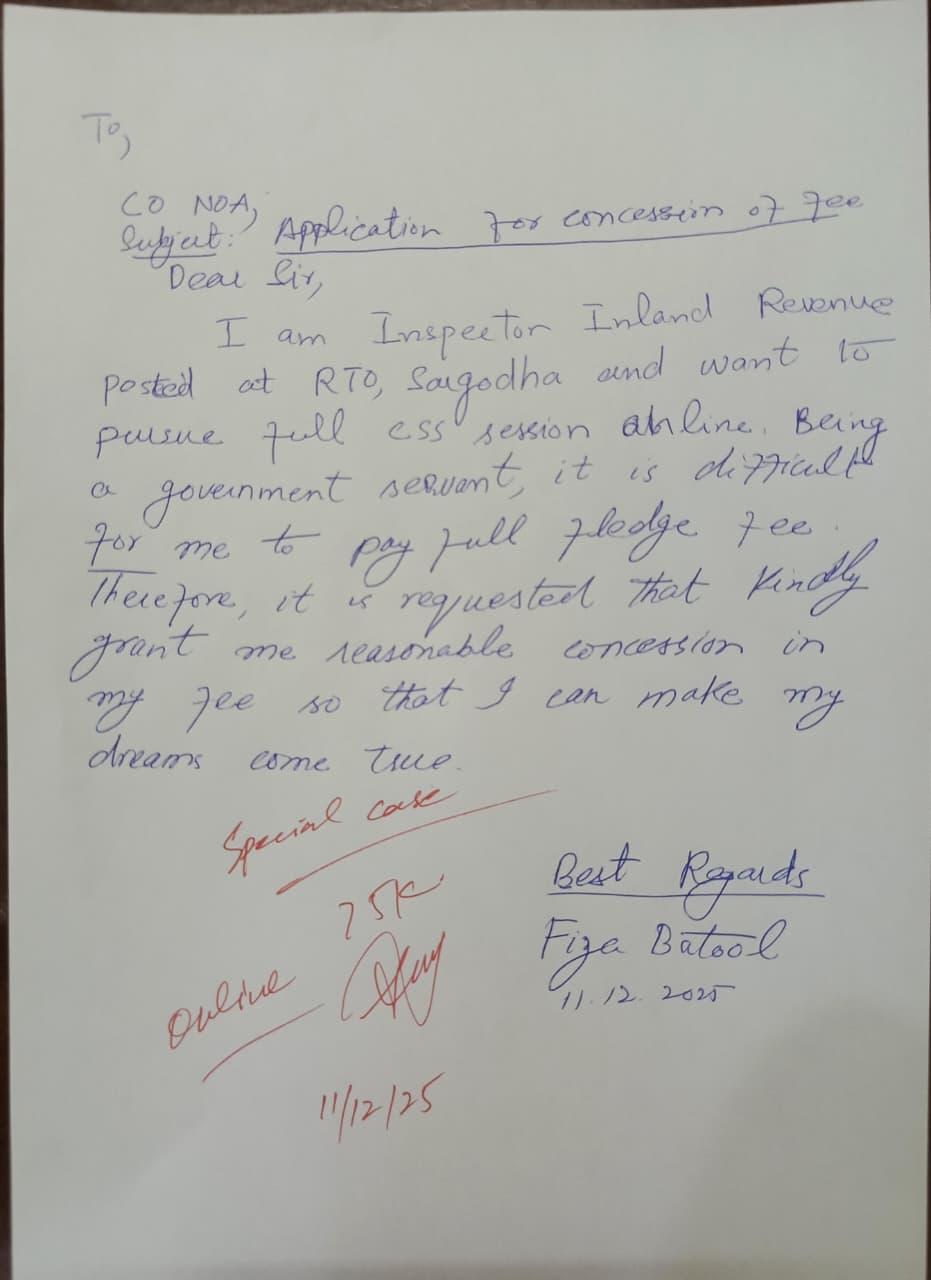 To,
CO NOA,
Subject: Application for concession of fee
Dear Sir,
I am Inspector Inland Revenue
posted at RTO, Sargodha and want to
pursue full css session online. Being
a government servant, it is difficult
for me to pay full fledge fee.
Therefore, it is requested that kindly
grant me reasonable concession in
my fee so that I can make my
dreams come true.
Special case
75K
Online
11/12/25
Best Regards
Fiza Batool
11.12.2025